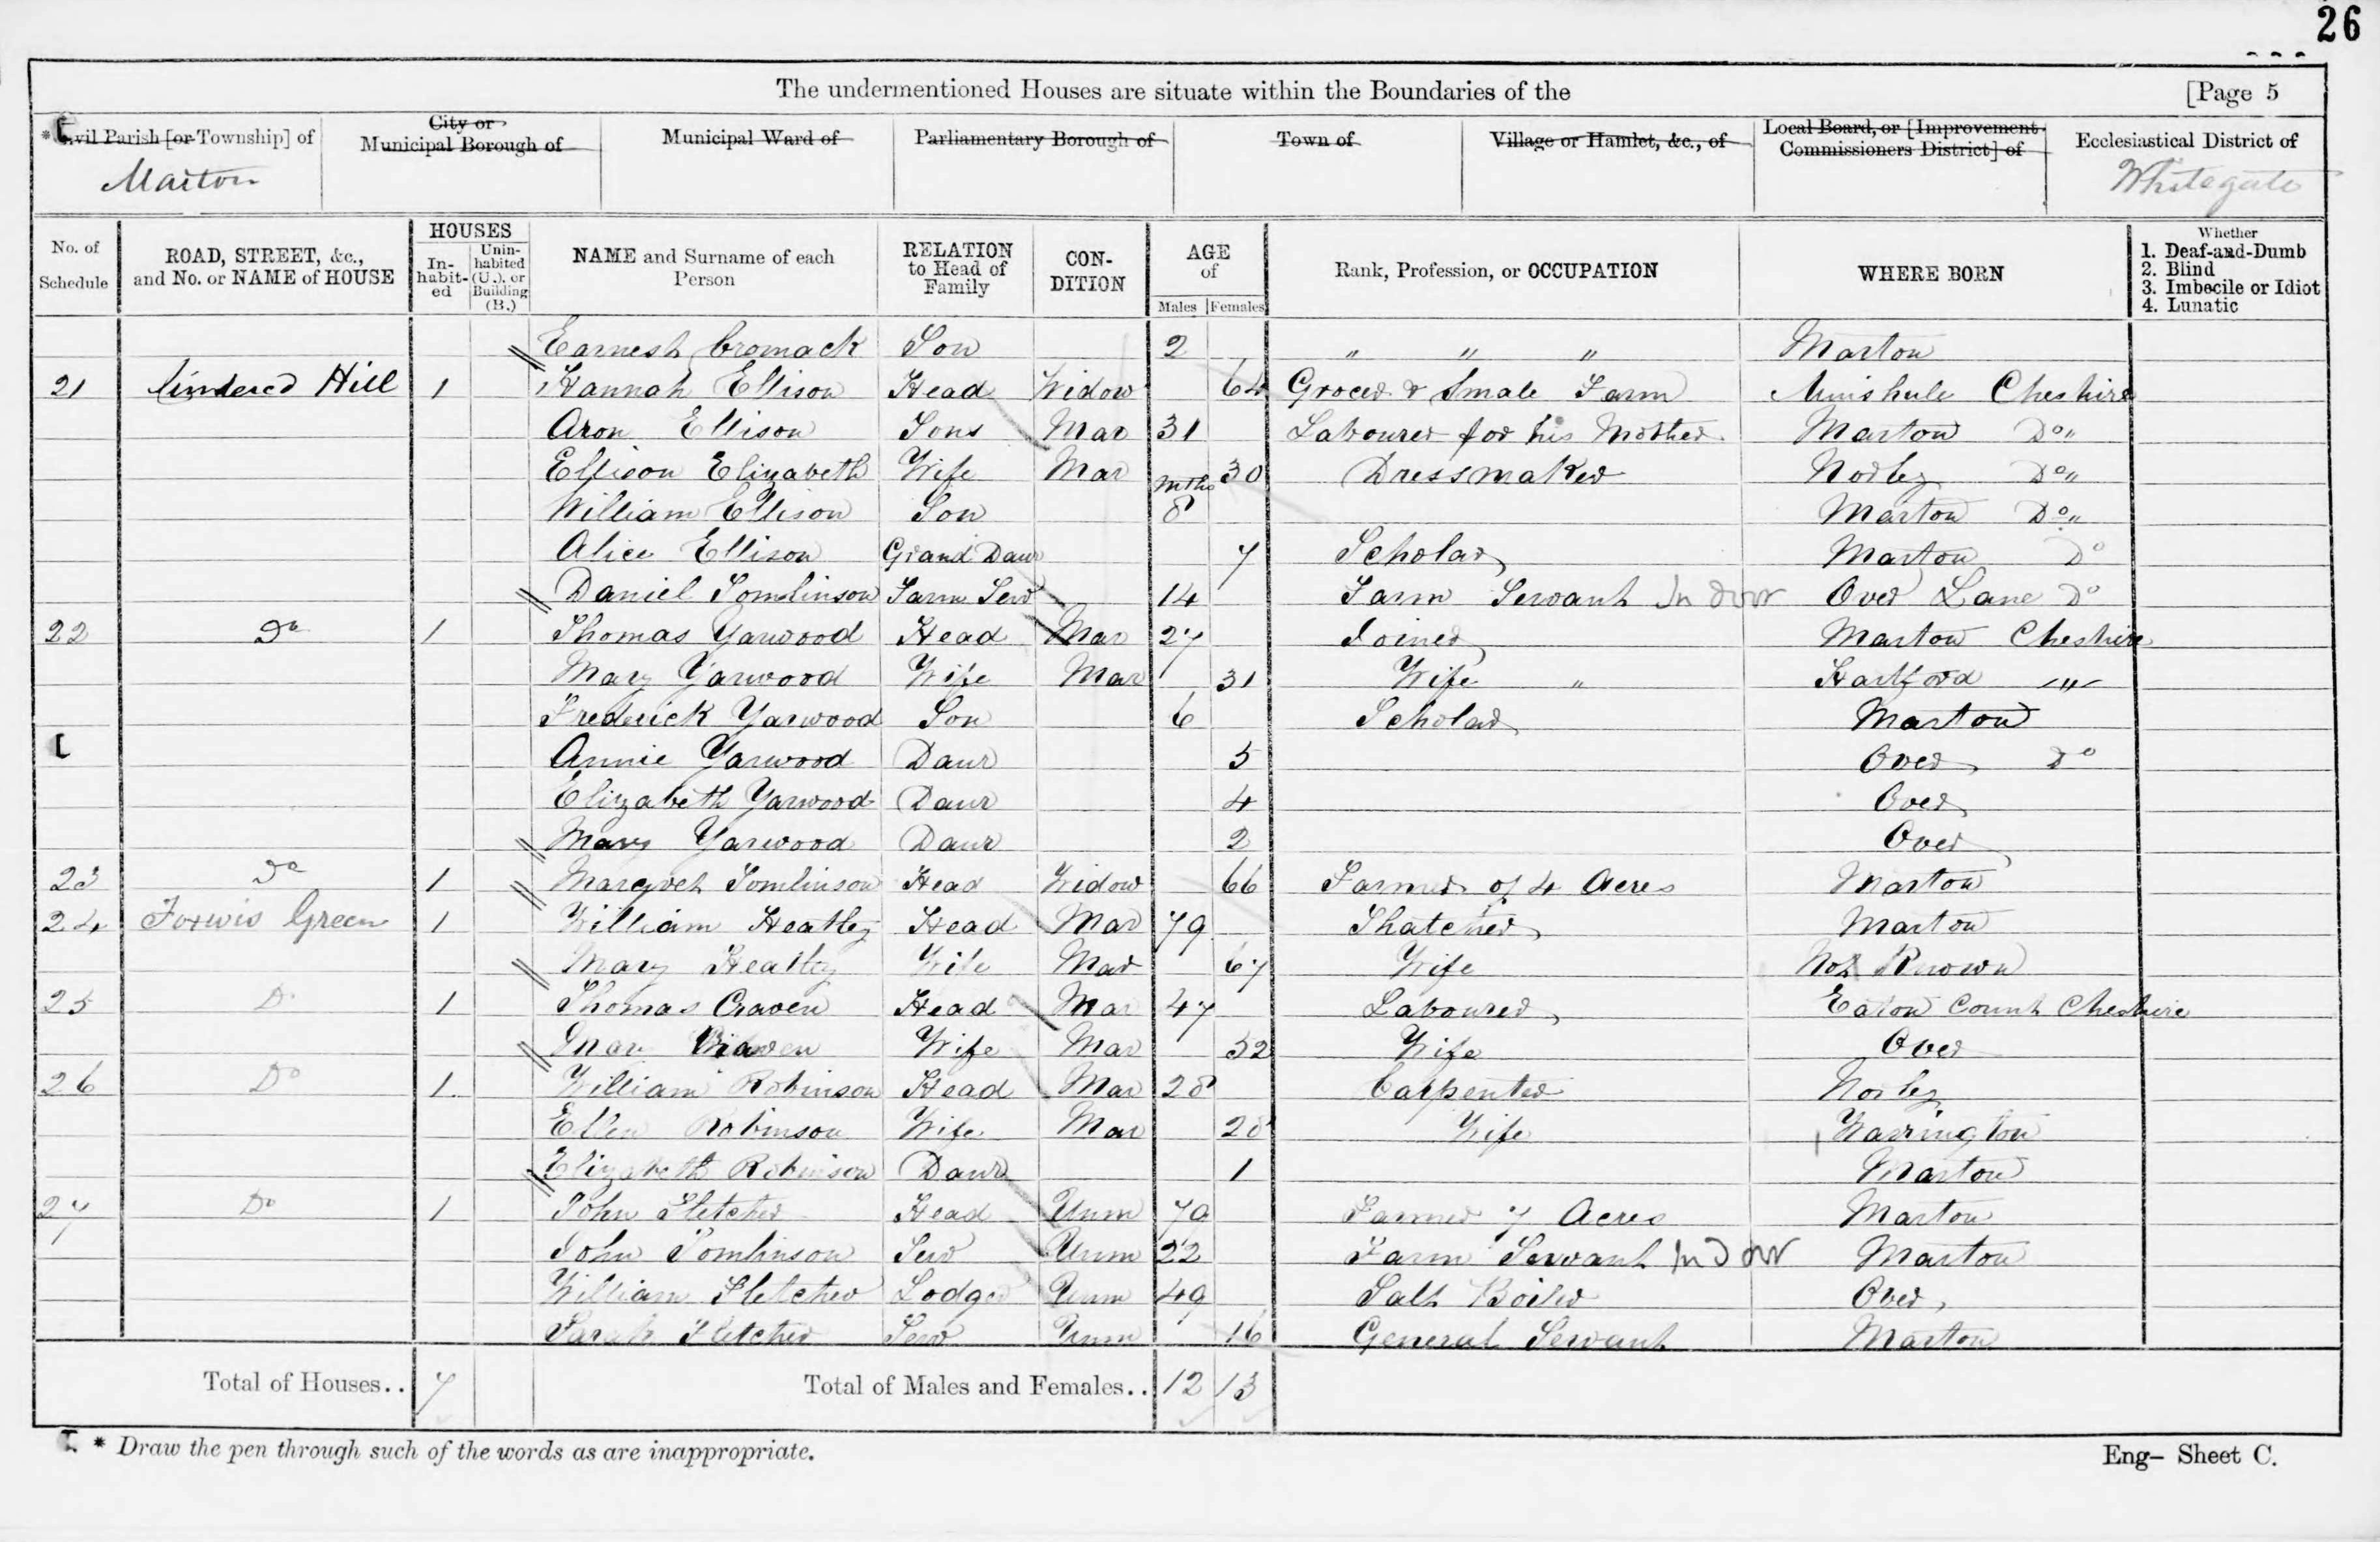 26
The undermentioned Houses are situate within the Boundaries of the [Page 5
*Civil Parish [or Township] of City or Municipal Borough of Municipal Ward of Parliamentary Borough of Town of Village or Hamlet, &c., of Local Board, or [Improvement Commissioners District] of Ecclesiastical District of
Marton Whitegate
No. of Schedule ROAD, STREET, &c., and No. or NAME of HOUSE HOUSES Inhabited Uninhabited (U.), or Building (B.) NAME and Surname of each Person RELATION to Head of Family CONDITION AGE of Males Females Rank, Profession, or OCCUPATION WHERE BORN Whether 1. Deaf-and-Dumb 2. Blind 3. Imbecile or Idiot 4. Lunatic
Earnest Cromack Son 2 " " " Marton
21 Hill 1 Hannah Ellison Head Widow 64 Grocer & Smale Farm Minshule Cheshire
Aron Ellison Sons Mar 31 Labourer for his Mother Marton Do"
Ellison Elizabeth Wife Mar 30 Dressmaker Norley Do"
William Ellison Son mths 8 Marton Do"
Alice Ellison Grand Daur 7 Scholar Marton Do
Daniel Tomlinson Farm Serv 14 Farm Servant In door Over Lane Do
22 Do 1 Thomas Yarwood Head Mar 27 Joiner Marton Cheshire
Mary Yarwood Wife Mar 31 Wife " Hartford "
Frederick Yarwood Son 6 Scholar Marton
Annie Yarwood Daur 5 Over Do
Elizabeth Yarwood Daur 4 Over
Mary Yarwood Daur 2 Over
23 Do 1 Margret Tomlinson Head Widow 66 Farmer of 4 Acres Marton
24 Foxwis Green 1 William Heatley Head Mar 79 Thatcher Marton
Mary Heatley Wife Mar 67 Wife Not Known
25 D 1 Thomas Craven Head Mar 47 Labourer Eaton Count Cheshire
Craven Wife Mar 52 Wife Over
26 Do 1 William Robinson Head Mar 28 Carpenter Norley
Ellen Robinson Wife Mar 28 Wife Warrington
Elizabeth Robinson Daur 1 Marton
27 Do 1 John Fletcher Head Unm 79 Farmer 7 Acres Marton
John Tomlinson Serv Unm 22 Farm Servant In Door Marton
William Fletcher Lodger Unm 49 Salt Boiler Over
Sarah Fletcher Serv Unm 16 General Servant Marton
Total of Houses.. 7 Total of Males and Females.. 12 13
* Draw the pen through such of the words as are inappropriate. Eng- Sheet C.